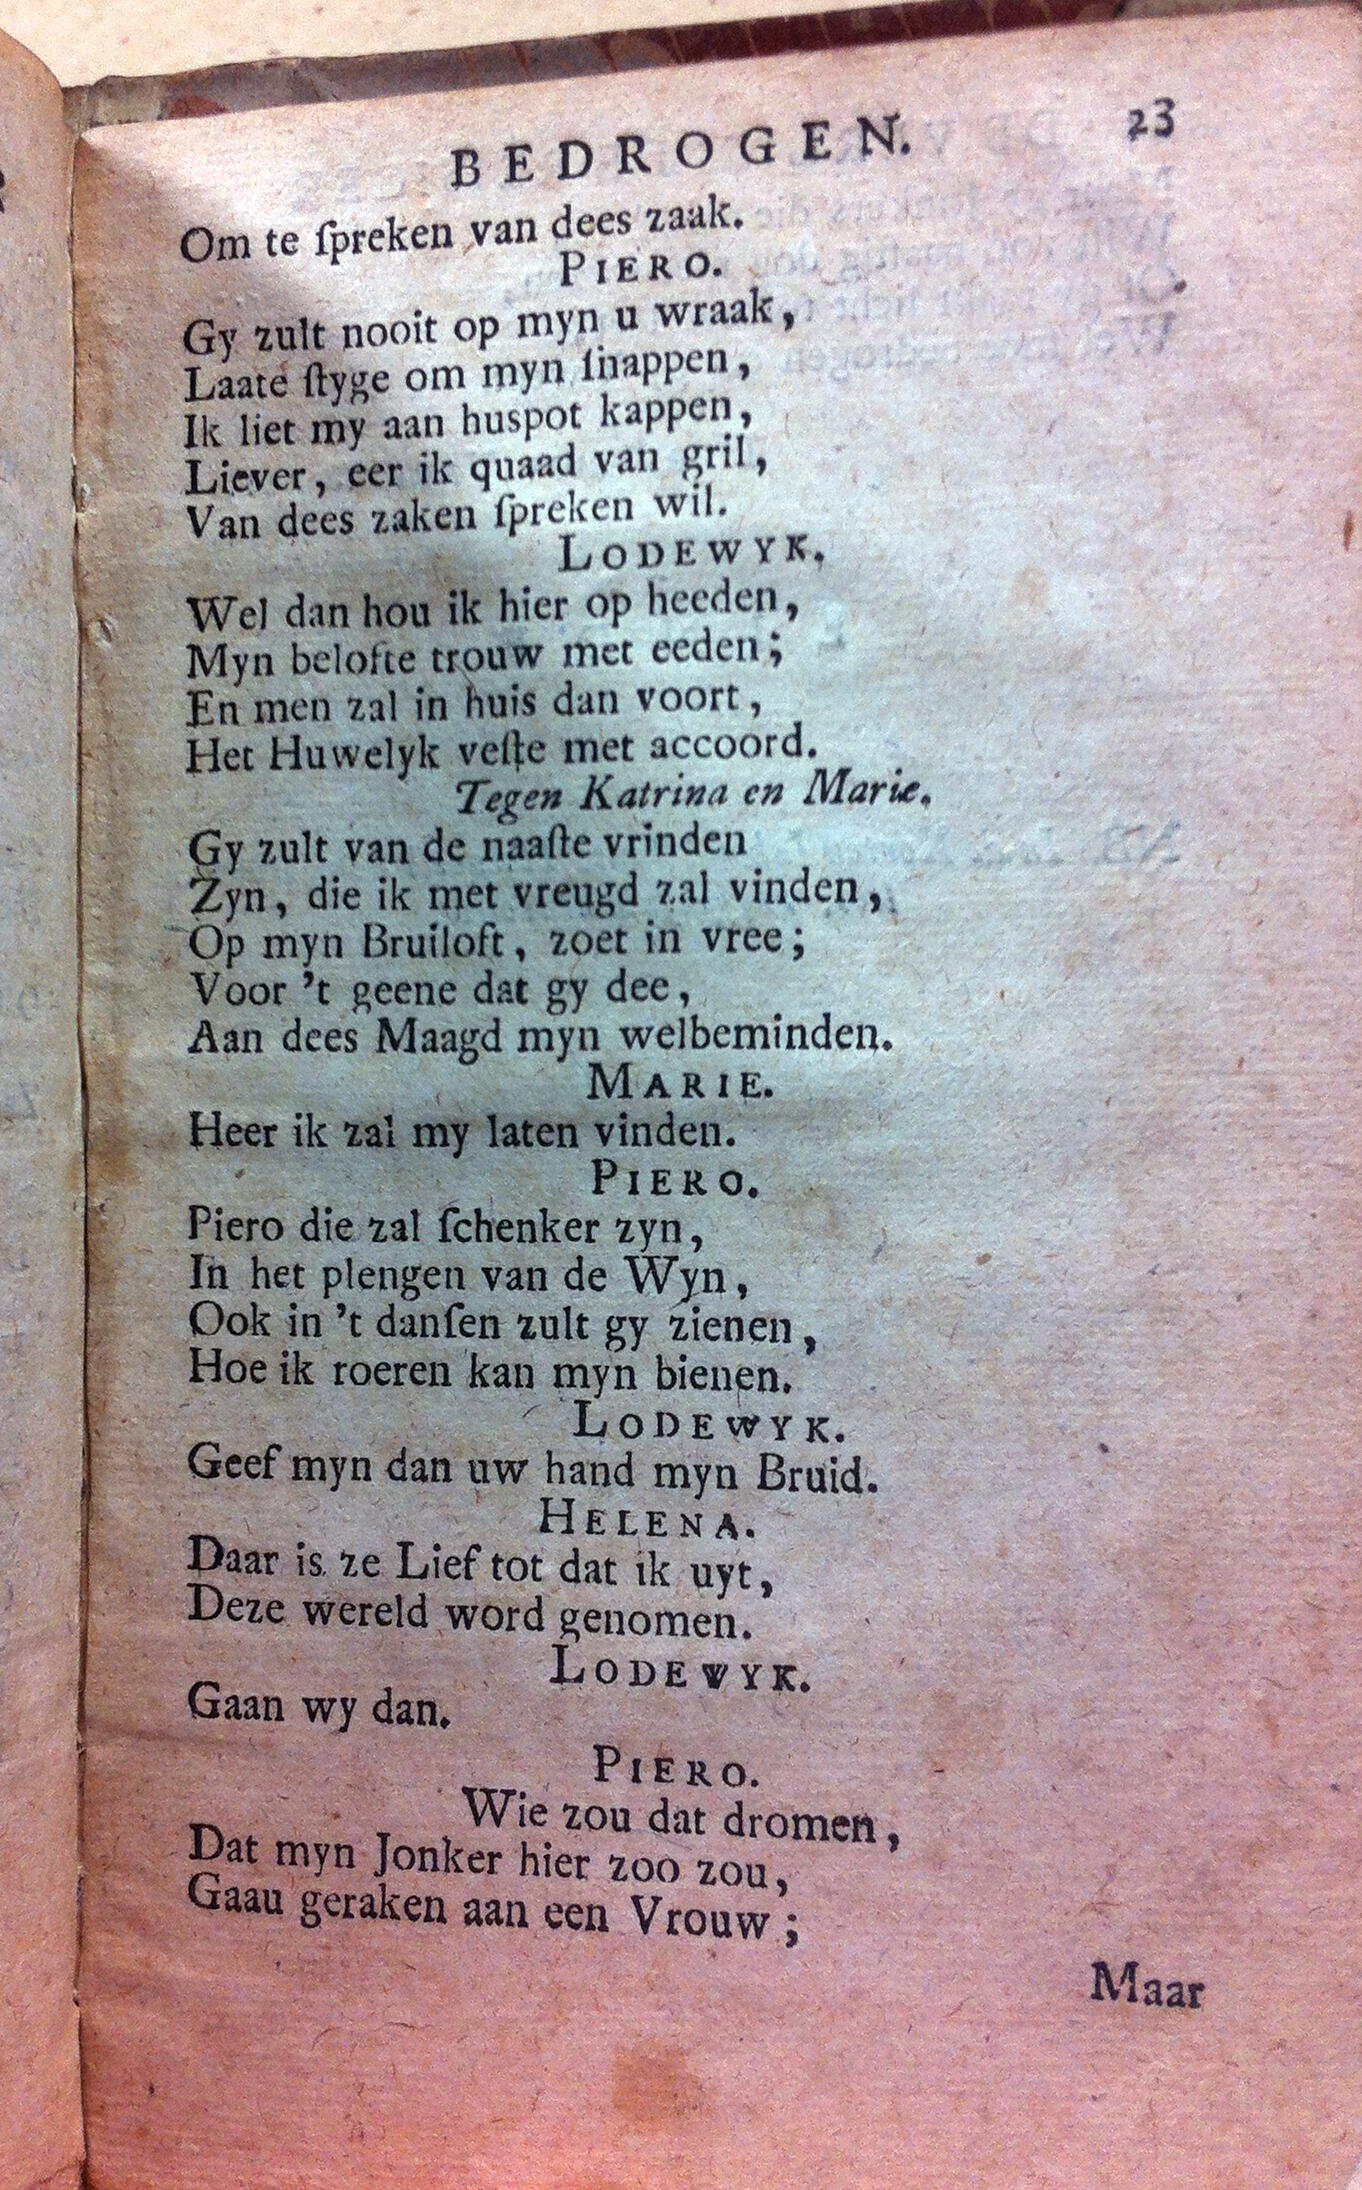 BEDROGEN. 23
Om te ſpreken van dees zaak.
PIERO.
Gy zult nooit op myn u wraak,
Laate ſtyge om myn ſnappen,
Ik liet my aan huspot kappen,
Liever, eer ik quaad van gril,
Van dees zaken ſpreken wil.
LODEWYK.
Wel dan hou ik hier op heeden,
Myn belofte trouw met eeden;
En men zal in huis dan voort,
Het Huwelyk veſte met accoord.
Tegen Katrina en Marie.
Gy zult van de naaſte vrinden
Zyn, die ik met vreugd zal vinden,
Op myn Bruiloft, zoet in vree;
Voor 't geene dat gy dee,
Aan dees Maagd myn welbeminden.
MARIE.
Heer ik zal my laten vinden.
PIERO.
Piero die zal ſchenker zyn,
In het plengen van de Wyn,
Ook in 't danſen zult gy zienen,
Hoe ik roeren kan myn bienen.
LODEWYK.
Geef myn dan uw hand myn Bruid.
HELENA.
Daar is ze Lief tot dat ik uyt,
Deze wereld word genomen.
LODEWYK.
Gaan wy dan.
PIERO.
Wie zou dat dromen,
Dat myn Jonker hier zoo zou,
Gaau geraken aan een Vrouw;
Maar